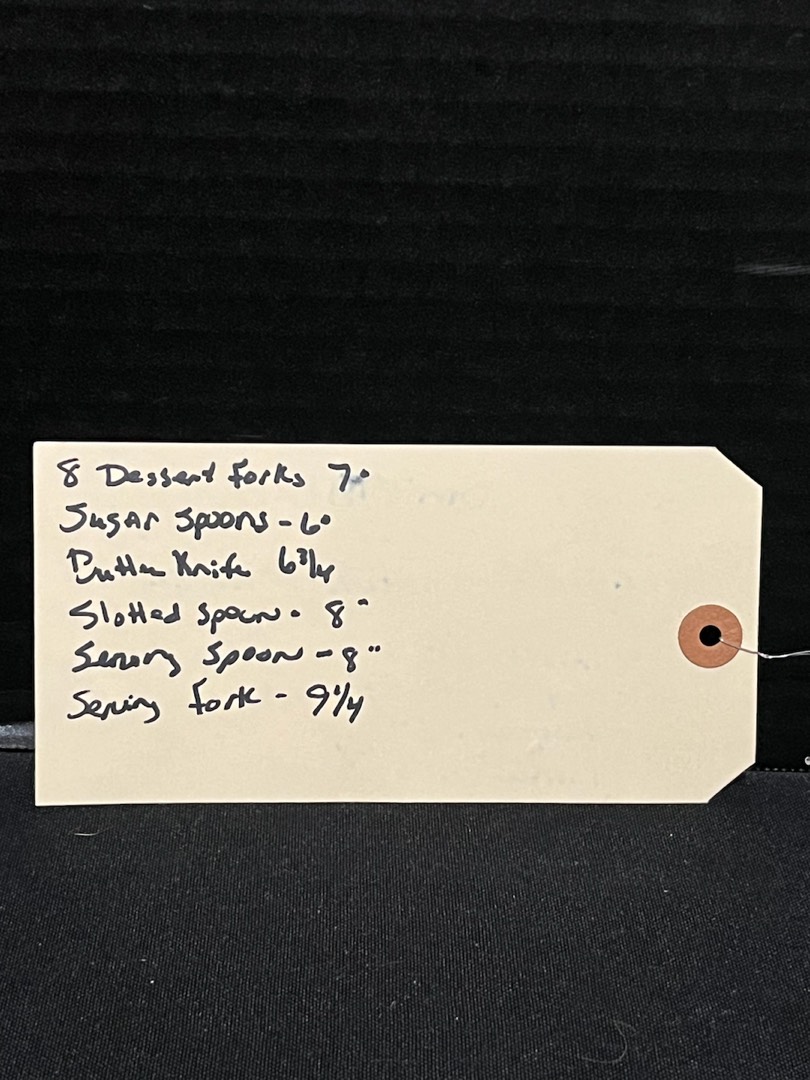 8 Dessert Forks 7"
Sugar Spoons - 6"
Butter Knife 6 3/4
Slotted Spoon - 8"
Serving Spoon - 8"
Serving Fork - 9 1/4